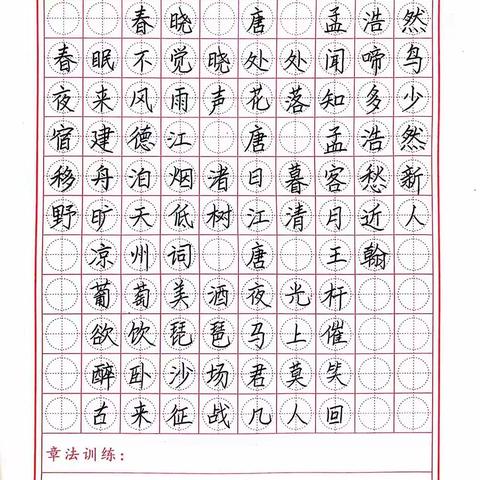 春晓 唐 孟浩然
春眠不觉晓处处闻啼鸟
夜来风雨声花落知多少
宿建德江 唐 孟浩然
移舟泊烟渚日暮客愁新
野旷天低树江清月近人
凉州词 唐 王翰
葡萄美酒夜光杆
欲饮琵琶马上催
醉卧沙场君莫笑
古来征战几人回
章法训练：